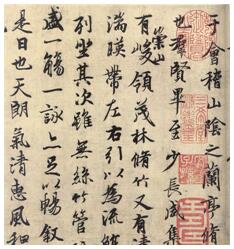 于會稽山陰之蘭亭脩
也羣賢畢至少長咸集
有崇山峻領茂林脩竹又有清
湍暎帶左右引以為流
列坐其次雖無絲竹管
盛一觴一詠亦足以暢敘
是日也天朗氣清惠風和